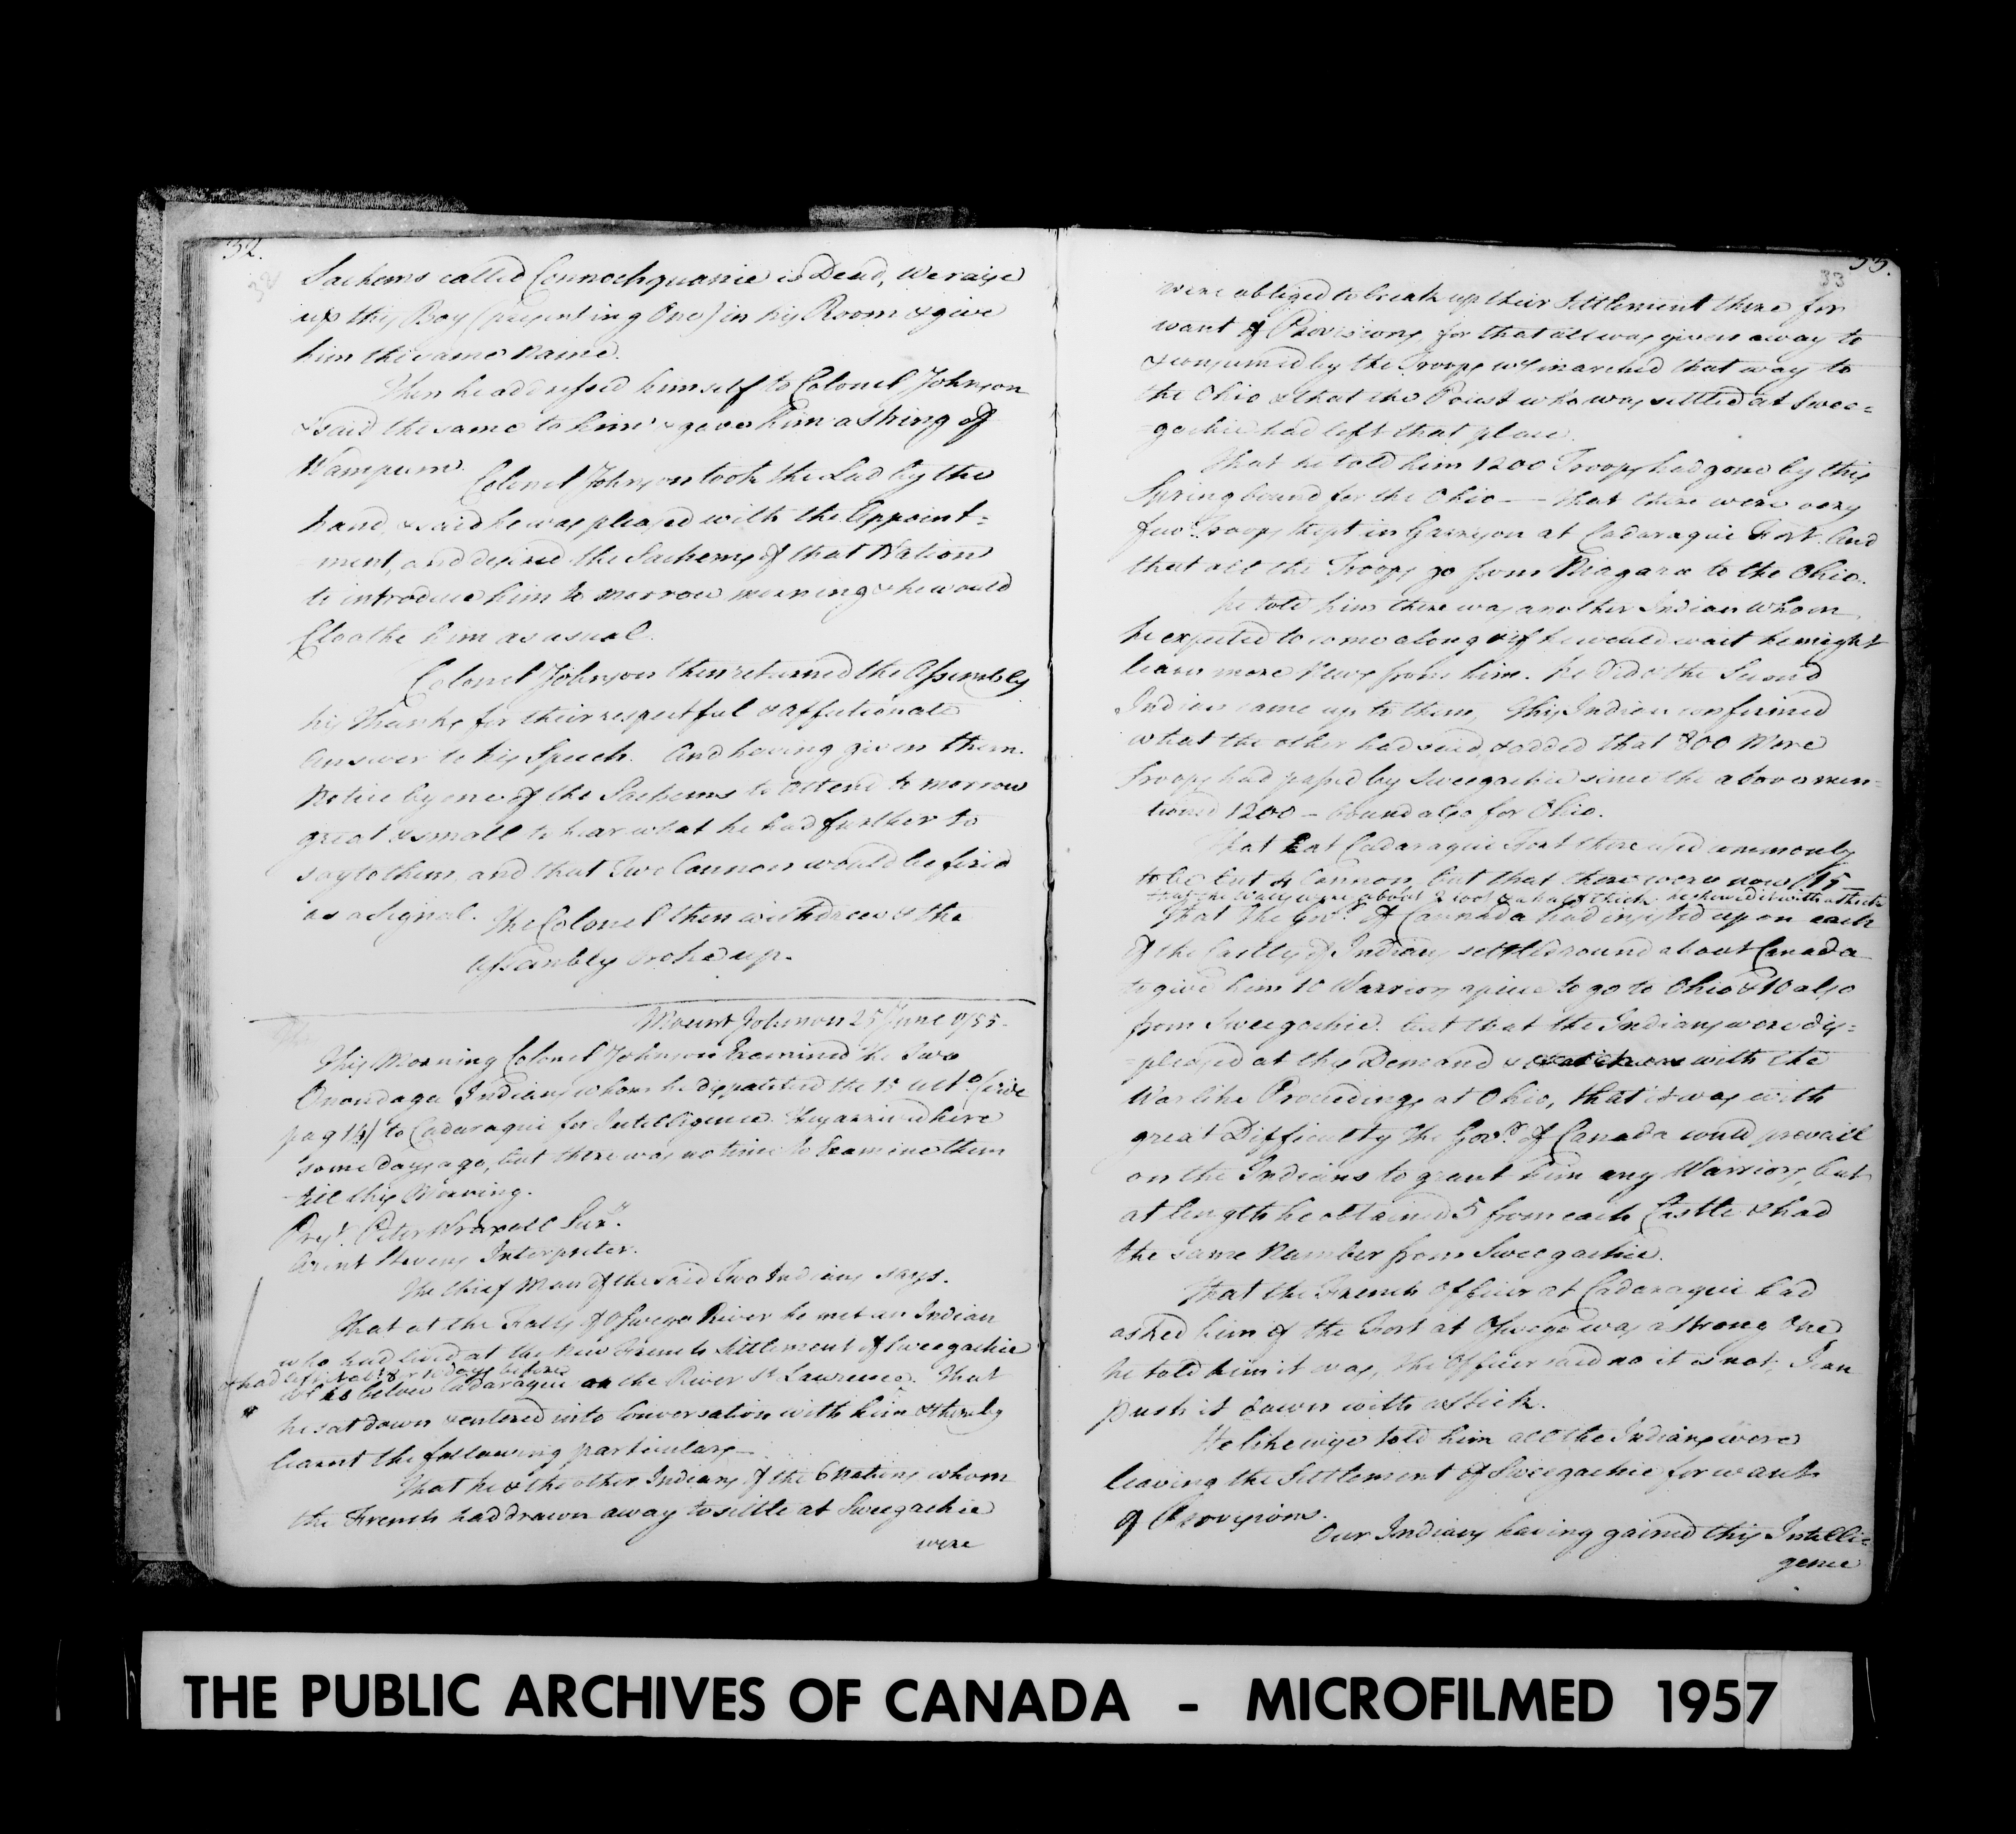 52.
32
Sachems called Connochquanie is Dead, We raise
up this Boy (presenting One) in his Room & give
him the same Name.
Then he addressed himself to Colonel Johnson
& said the same to him & gave him a string of
Wampum.
Colonel Johnson took the Lad by the
hand, & said he was pleased with the Appoint=
ment, and desired the Sachems of that Nation
to introduce him to morrow morning & he would
Cloathe him as usual.
Colonel Johnson then returned the Assembly
his thanks for their respectful & affectionate
Answer to his Speech. And having given them
Notice by one of the Sachems to attend to morrow
great & small to hear what he had further to
say to them, and that Two Cannon would be fired
as a Signal. The Colonel then withdrew & the
Assembly broke up.
Mount Johnson 25 June 1755.
This Morning Colonel Johnson Examined the Two
Onondaga Indians whom he dispatched the 15 ulto. (vide
pag 14) to Cadaraqui for Intelligence. They arrived here
some days ago, but there was no time to Examine them
till this Morning.
Prest. Peter Wraxall Secy.
Arent Stevens Interpreter.
The Chief Man of the said Two Indians says.
That at the Falls of Oswego River he met an Indian
who had lived at the New French Settlement of Sweegachie
& had left it 8 or 10 days before
wch. is below Cadaraqui on the River St. Lawrence. That
he sat down & entered into Conversation with him & thereby
learnt the following particulars—
That he & the other Indians of the 6 Nations whom
the French had drawn away to settle at Sweegachie
were
33.
33
were obliged to break up their Settlement there for
want of Provisions, for that all was given away to
& consumed by the Troops wch. marched that way to
the Ohio & that the Priest who was settled at Swee=
gachie had left that place.
That he told him 1200 Troops had gone by this
Spring bound for the Ohio — That there were very
few Troops kept in Garrison at Cadaraqui Fort. And
that all the Troops go from Niagara to the Ohio.
he told him there was another Indian whom
he expected to come along & if he would wait he might
learn more News from him. he did & the Second
Indian came up to them, this Indian confirmed
what the other had said, & added that 800 More
Troops had passed by Sweegachie since the above men=
tioned 1200 — bound also for Ohio.
That at Cadaraqui Fort there used commonly
to be but 4 Cannon, but that there were now 15—
that the Walls were about 2 foot & a half thick he shewed it with a stick
That the Govr. of Cannada had insisted upon each
of the Castles of Indians settled round about Canada
to give him 10 Warriors apiece to go to Ohio & 10 also
from Sweegachie. but that the Indians were dis=
=pleased at this Demand & with the
Warlike Proceedings at Ohio, that it was with
great Difficulty the Govr. of Canada could prevail
on the Indians to grant him any Warriors, but
at length he obtained 5 from each Castle & had
the same Number from Sweegachie.
That the French Officer at Cadaraqui had
asked him if the Fort at Oswego was a strong One,
he told him it was, the Officer said no it is not, I can
push it down with a stick.
He likewise told him all the Indians were
leaving the Settlement of Sweegachie for want
of Provisions.
Our Indians having gained this Intelli=
gence
THE PUBLIC ARCHIVES OF CANADA - MICROFILMED 1957